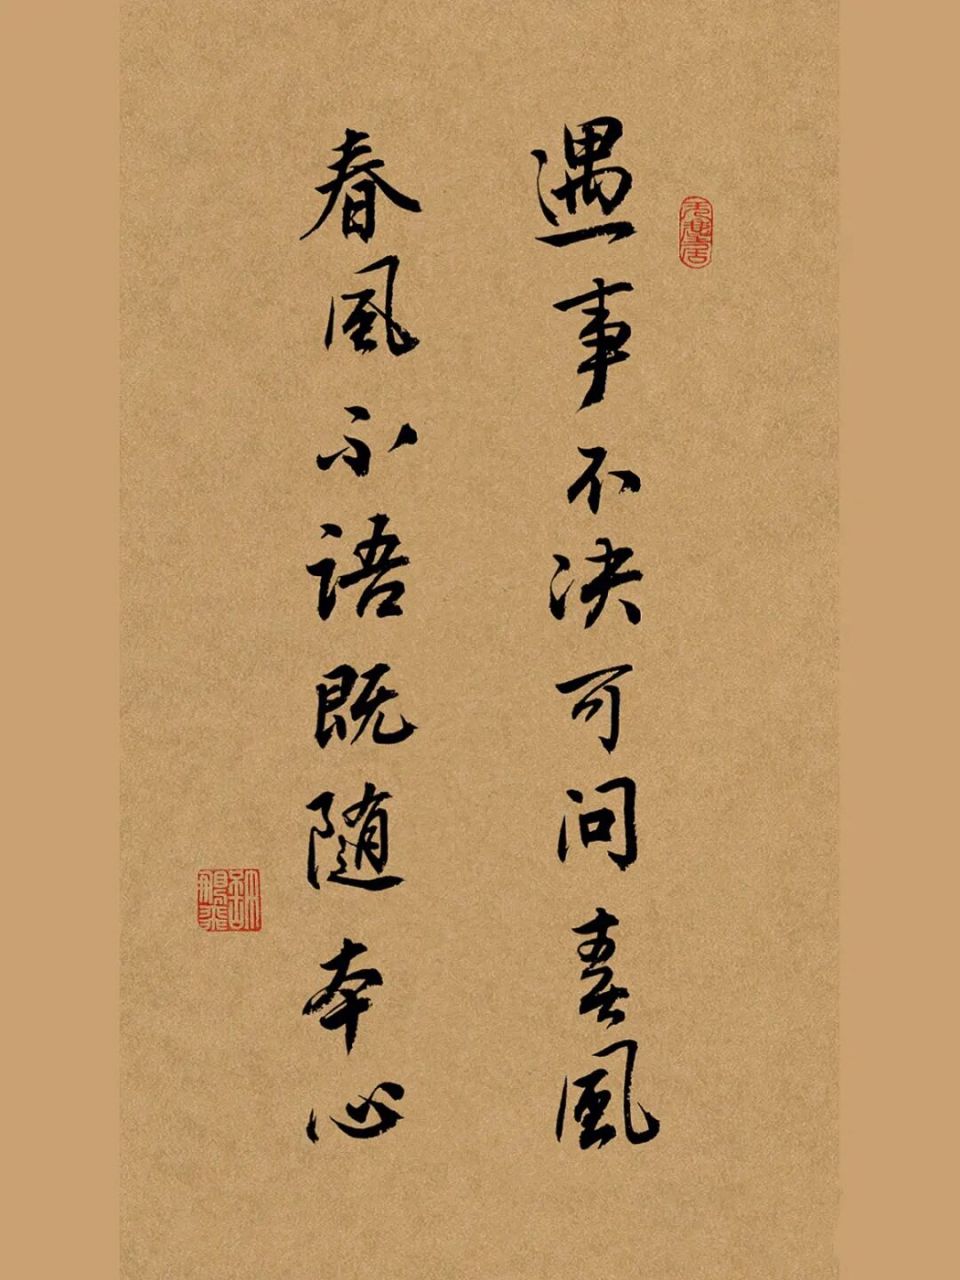 遇事不决可问春风
春风不语既随本心